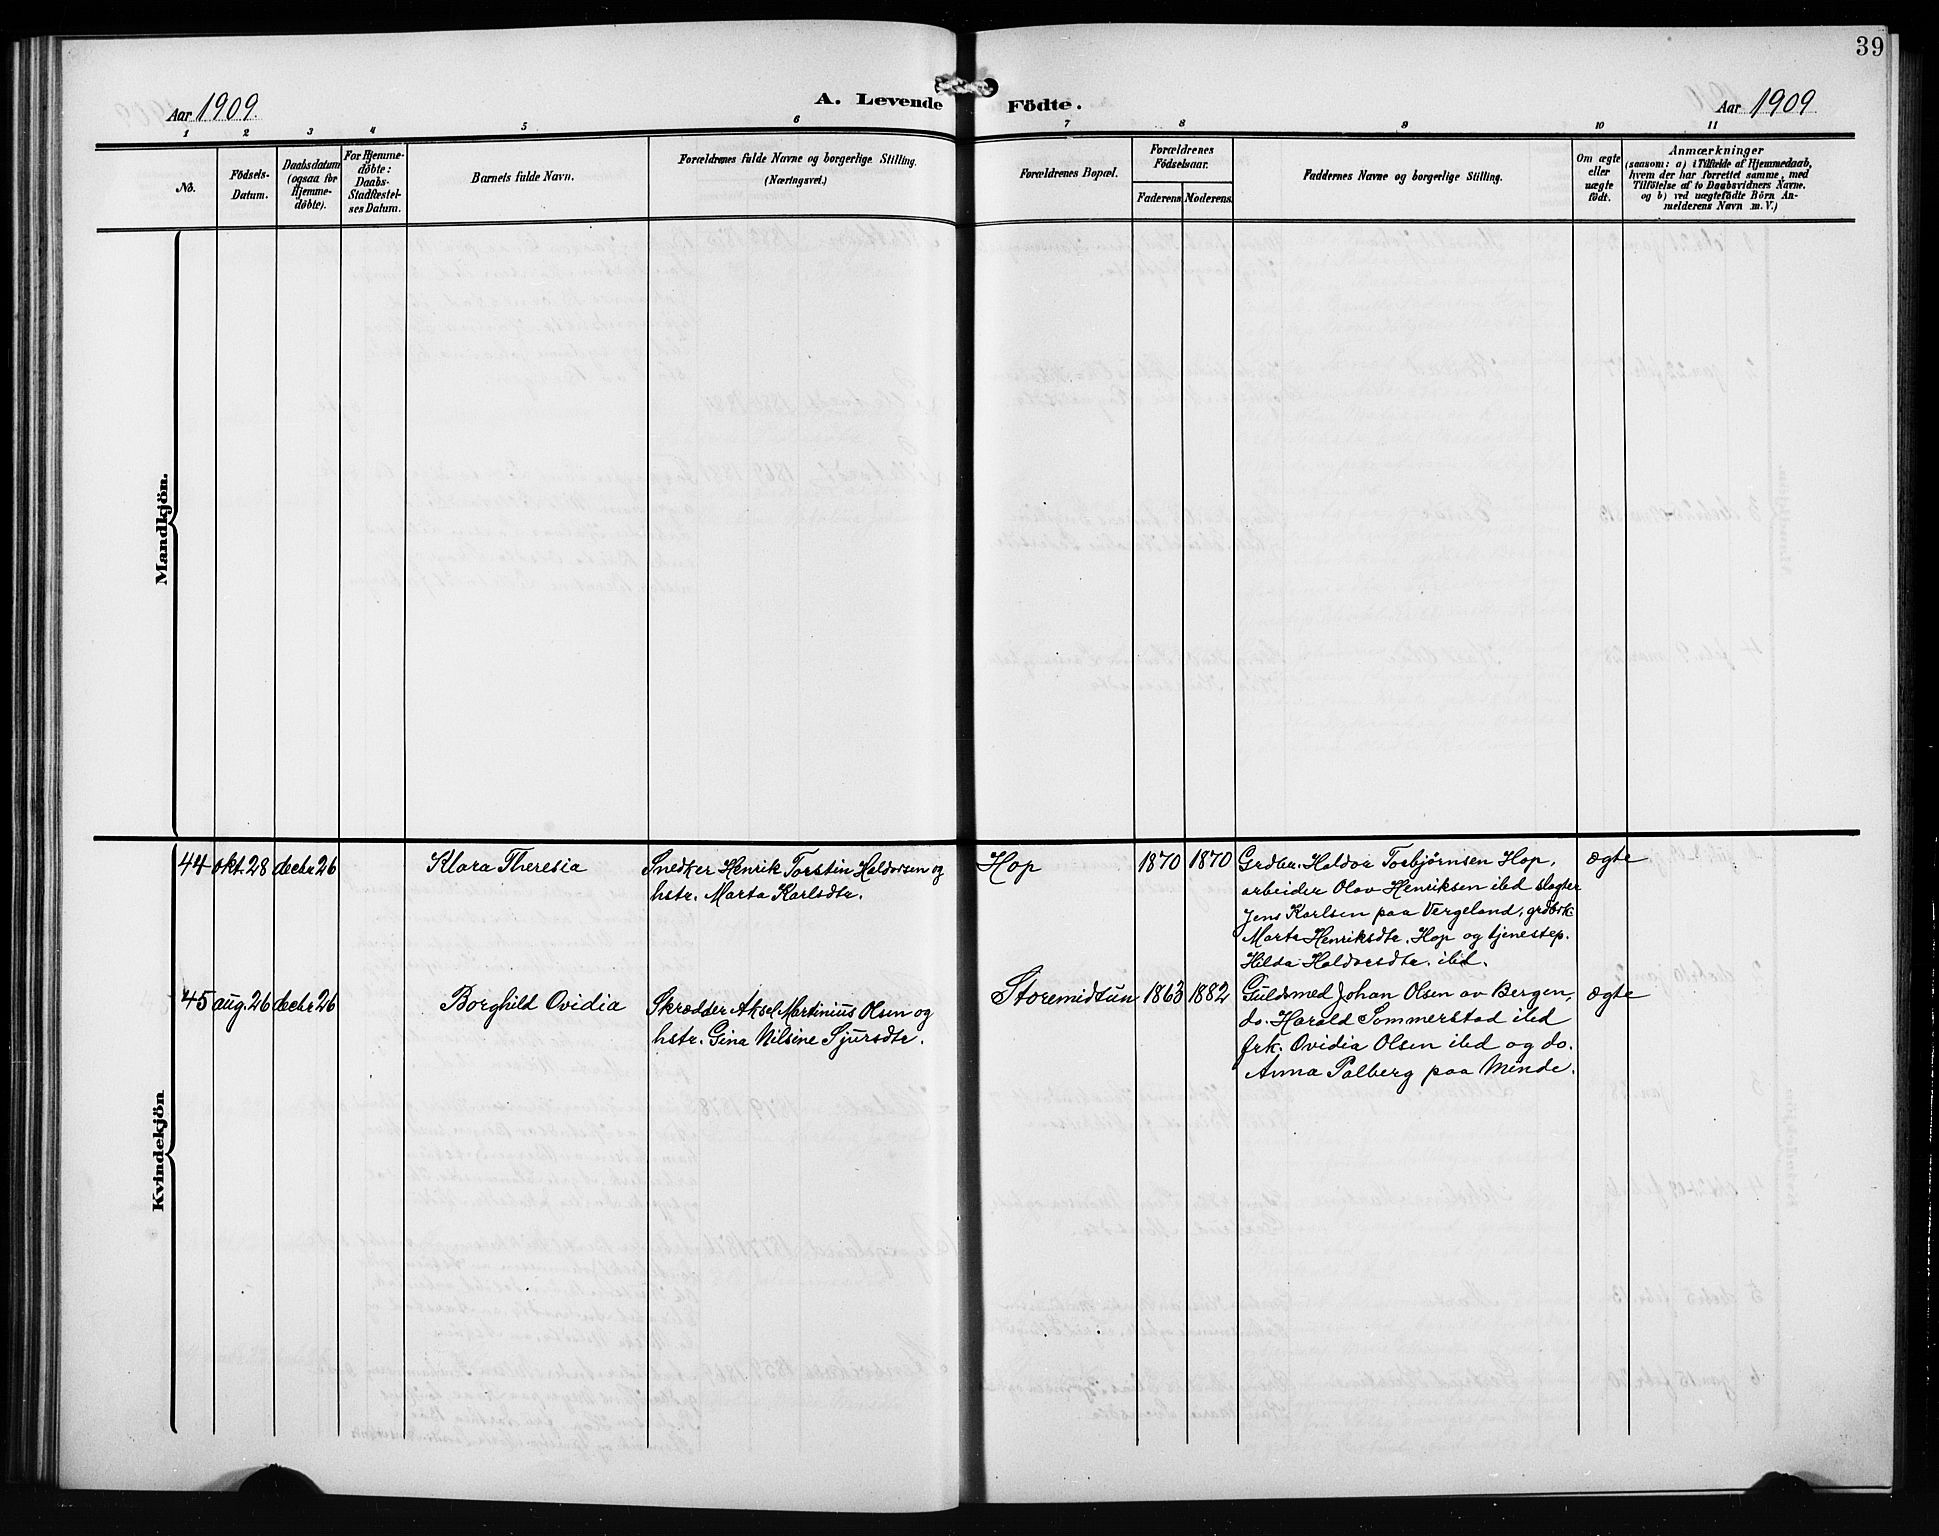 39
Aar 1909.
A. Levende Födte.
Aar 1909
1 2 3 4 5 6 7 8 9 10 11
No.
Födsels-Datum.
Daabsdatum (ogsaa for Hjemme-döbte).
For Hjemme-döbte: Daabs-Stadfæstel-ses Datum.
Barnets fulde Navn.
Forældrenes fulde Navne og borgerlige Stilling.
(Næringsvei.)
Forældrenes Bopæl.
Forældrenes Födselsaar.
Faderens Moderens.
Faddernes Navne og borgerlige Stilling.
Om ægte eller uægte födt.
Anmærkninger
(saasom: a) i Tilfælde af Hjemmedaab,
hvem der har forrettet samme, med
Tilföielse af to Daabsvidners Navne.
og b) ved uægtefödte Börn An-
melderens Navn m. V.)
Mandkjön.
Kvindekjön
44 okt. 28 decbr 26 Klara Theresia Snedker Henrik Torstin Haldorsen og Hop 1870 1870 Grdbr. Haldor Torbjørnsen Hop, ægte
hstr. Marta Karlsdtr. arbeider Olav Henriksen ibd slagter
Jens Karlsen paa Vergeland, grdbrk.
Marta Henriksdtr. Hop og tjenestep.
Hilda Haldorsdtr. ibd.
45 aug. 26 decbr 26 Borghild Ovidia Skrædder Aksel Martinius Olsen og Storemidtun 1863 1882 Guldsmed Johan Olsen av Bergen, ægte
hstr. Gina Nilsine Sjursdtr. do. Harald Sommerstad ibd
frk. Ovidia Olsen ibd og do.
Anna Palberg paa Minde.